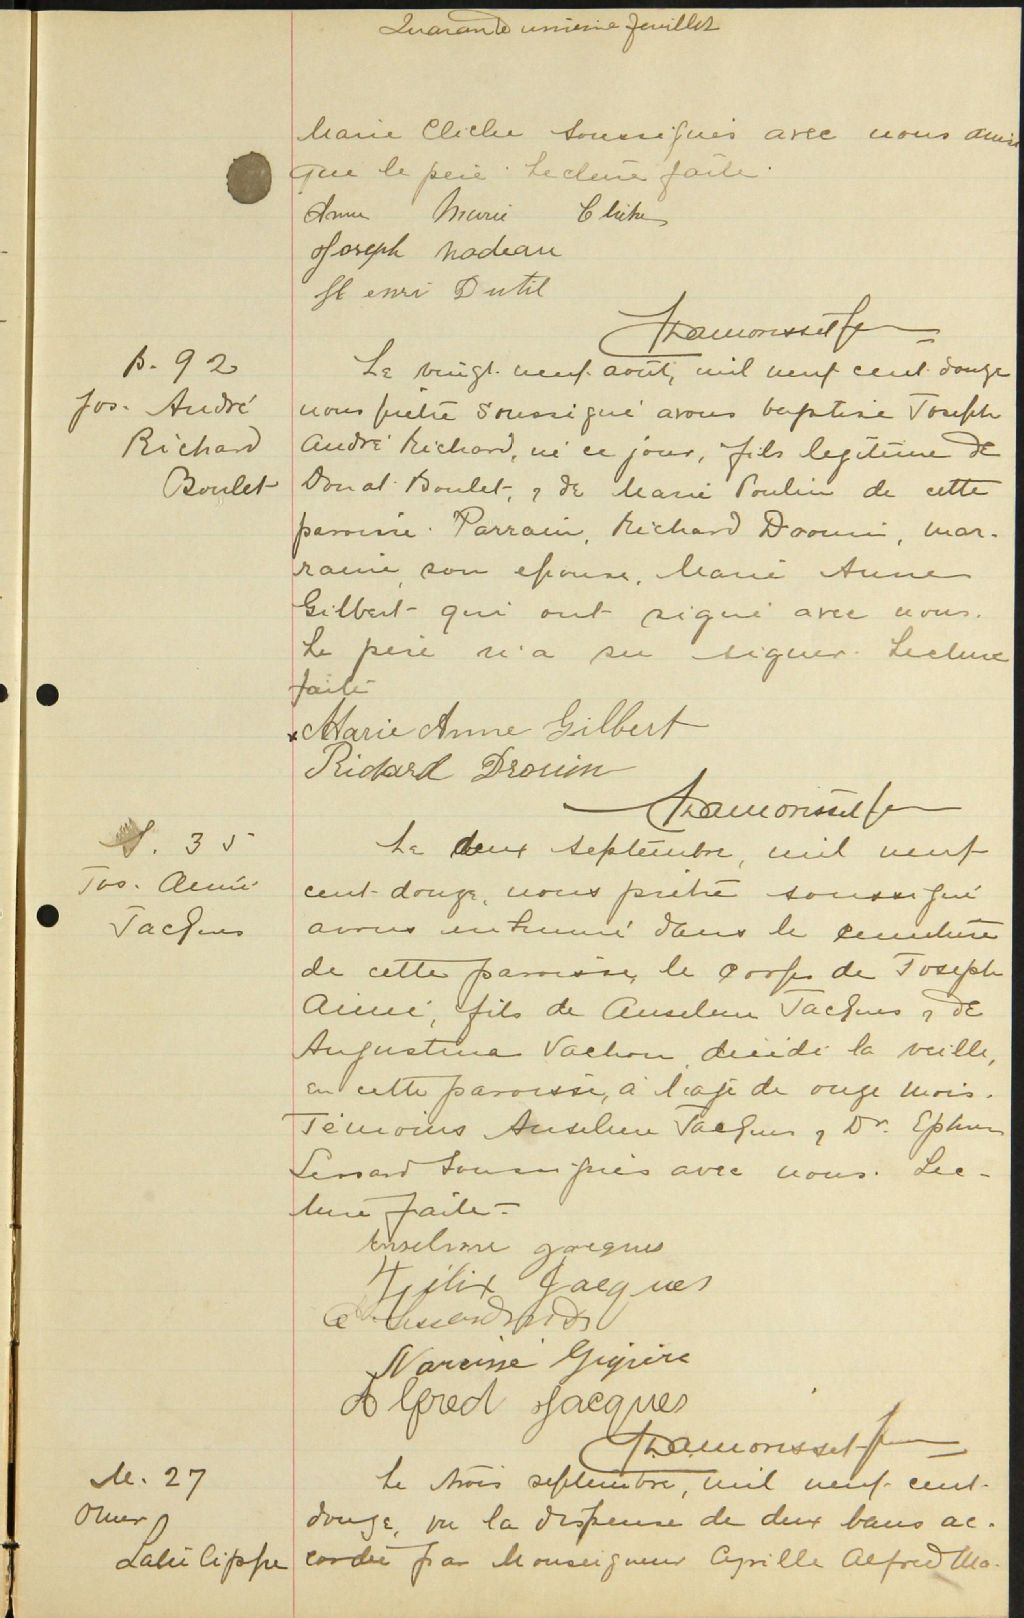 Quarante unième feuillet
Marie Cliche soussignés avec nous ainsi
que le père. Lecture faite.
Anna Marie Cliche
Joseph Nadeau
Henri Dutil
B. 92
Jos. André
Richard
Boulet
Le vingt-neuf août, mil neuf cent-douze
nous prêtre soussigné avons baptisé Joseph
André Richard, né ce jour, fils légitime de
Donat Boulet, & de Marie Poulin de cette
paroisse. Parrain, Richard Drouin, mar-
raine, son épouse, Marie Anne
Gilbert qui ont signé avec nous.
Le père n'a su signer. Lecture
faite
x Marie Anne Gilbert
Richard Drouin
S. 35
Jos. Aimé
Jacques
Le deux septembre, mil neuf
cent-douze, nous prêtre soussigné
avons inhumé dans le cimetière
de cette paroisse, le corps de Joseph
Aimé, fils de Anselme Jacques & de
Augustina Vachon, décédé la veille,
en cette paroisse, à l'âge de onze mois.
Témoins Anselme Jacques & Dr. Ephrem
Lessard soussignés avec nous. Lec-
ture faite-
Anselme Jacques
Félix Jacques
Lessard
Narcisse Giguère
Alfred Jacques
M. 27
Omer
Labé Cippe
Le trois septembre, mil neuf-cent-
douze, vu la dispense de deux bans ac-
cordée par Monseigneur Cyrille Alfred Ma-